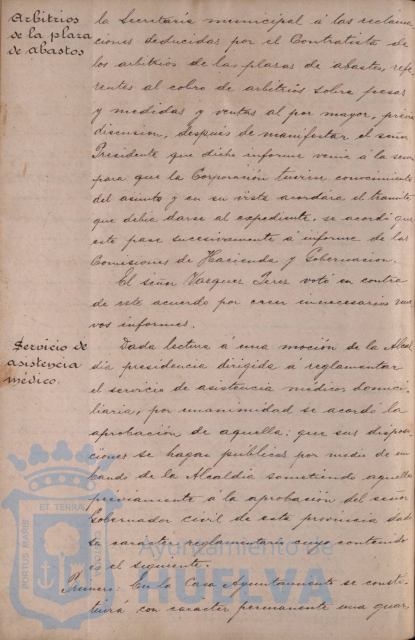 Arbitrios
de la plaza
de abastos
la Secretaría municipal á las reclama
ciones deducidas por el Contratista de
los arbitrios de las plazas de abastos, refe
rentes al cobro de arbitrios sobre pesas
y medidas y ventas al por mayor, previa
discusion, después de manifestar el señor
Presidente que dicho informe venia á la
para que la Corporación tuviese conocimiento
del asunto y en su vista acordara el tramite
que debia darse al expediente, se acordó que
este pase sucesivamente á informe de las
Comisiones de Hacienda y Gobernación.
El señor Vazquez Perez votó en contra
de este acuerdo por creer innecesarios nue
vos informes.
Servicio de
asistencia
médico.
Dada lectura á una moción de la Alcal
día presidencia dirigida á reglamentar
el servicio de asistencia médico domici
liaria, por unanimidad se acordó la
aprobación de aquella: que sus disposi
ciones se hagan públicas por medio de un
bando de la Alcaldía sometiendo aquellas
previamente á la aprobación del señor
Gobernador civil de esta provincia dado
su caracter reglamentario cuyo contenido
es el siguiente.
Primero: En la Casa Ayuntamiento se consti
tuirá con carácter permanente una guar
PORTUS MARIS ET TERRAE
Ayuntamiento de
HUELVA